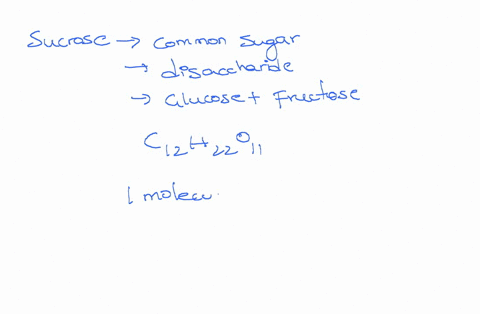 Sucrose → common sugar
→ disaccharide
→ Glucose + Fructose
C₁₂H₂₂O₁₁
1 molecu